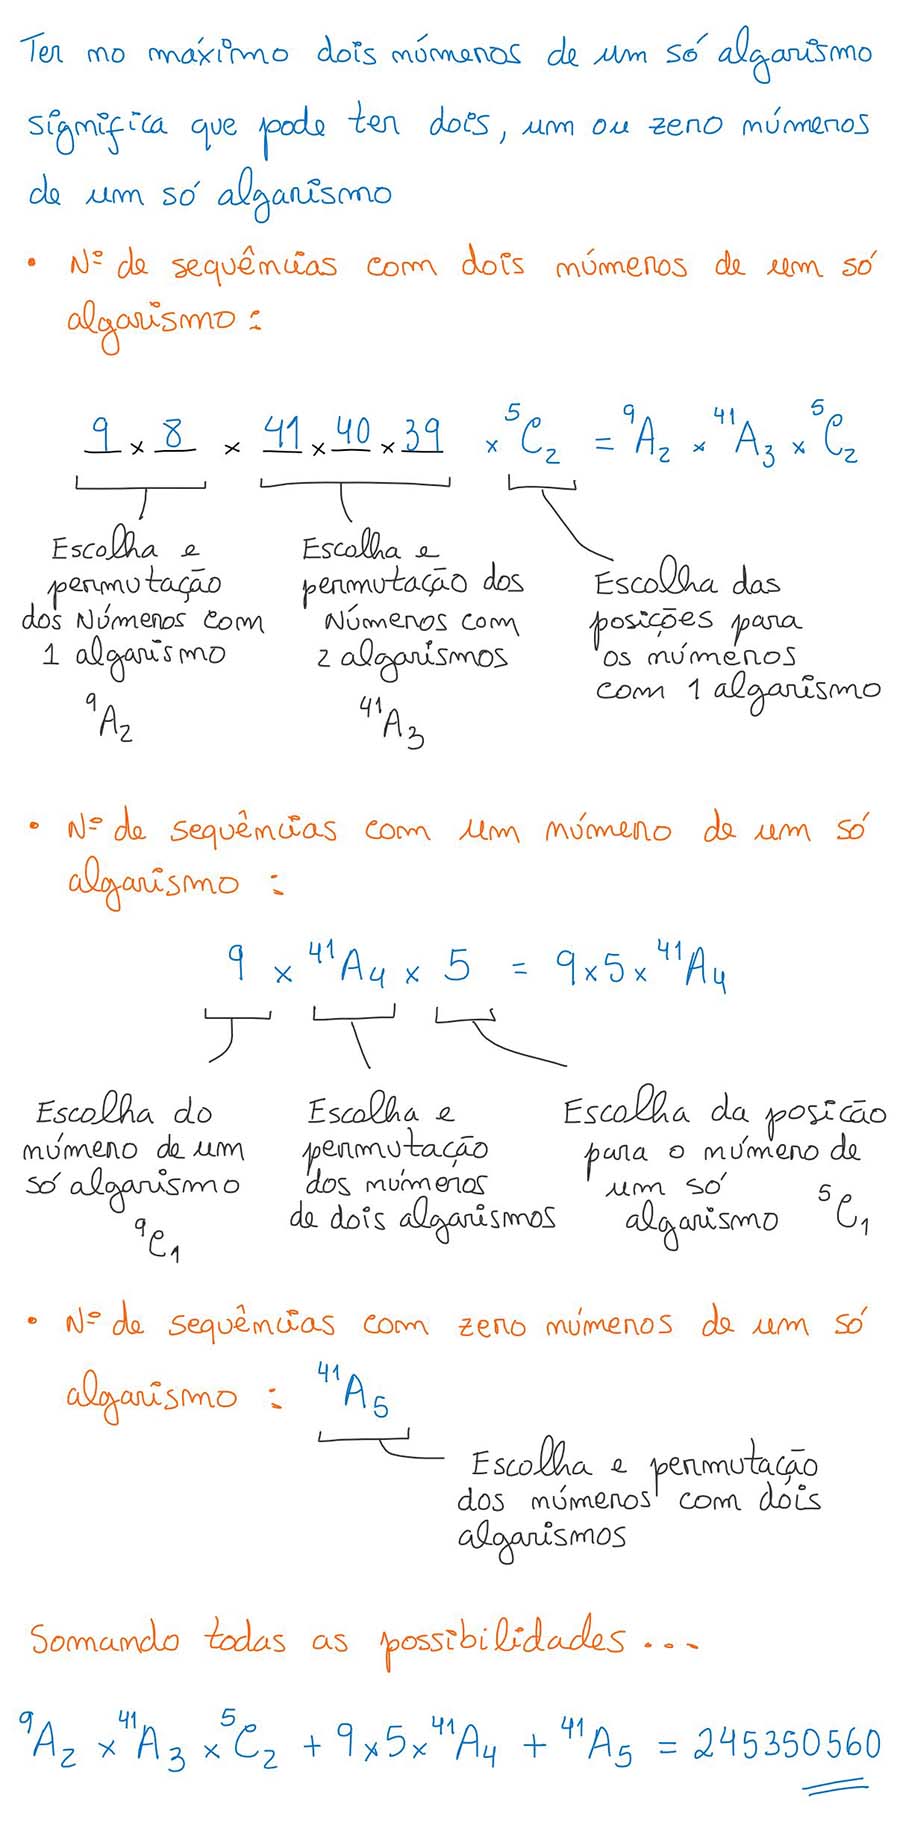 Ter no máximo dois números de um só algarismo
significa que pode ter dois, um ou zero números
de um só algarismo
• Nº de sequências com dois números de um só
algarismo:
9 × 8 × 41 × 40 × 39 × ⁵C₂ = ⁹A₂ × ⁴¹A₃ × ⁵C₂
Escolha e
permutação
dos Números com
1 algarismo
⁹A₂
Escolha e
permutação dos
Números com
2 algarismos
⁴¹A₃
Escolha das
posições para
os números
com 1 algarismo
• Nº de sequências com um número de um só
algarismo :
9 × ⁴¹A₄ × 5 = 9×5×⁴¹A₄
Escolha do
número de um
só algarismo
⁹C₁
Escolha e
permutação
dos números
de dois algarismos
Escolha da posicão
para o número de
um só
algarismo ⁵C₁
• Nº de sequências com zero números de um só
algarismo : ⁴¹A₅
Escolha e permutação
dos números com dóis
algarismos
Somando todas as possibilidades...
⁹A₂ × ⁴¹A₃ × ⁵C₂ + 9×5×⁴¹A₄ + ⁴¹A₅ = 245350560